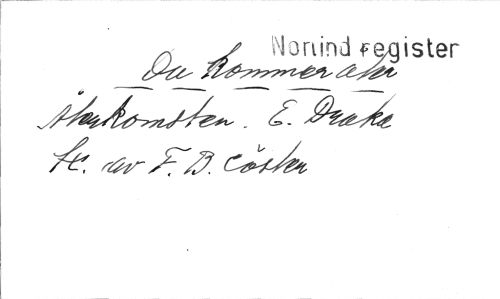 Norlind register
Du kommer åter
Återkomsten. E. Drake
H. av F. B. Cöster